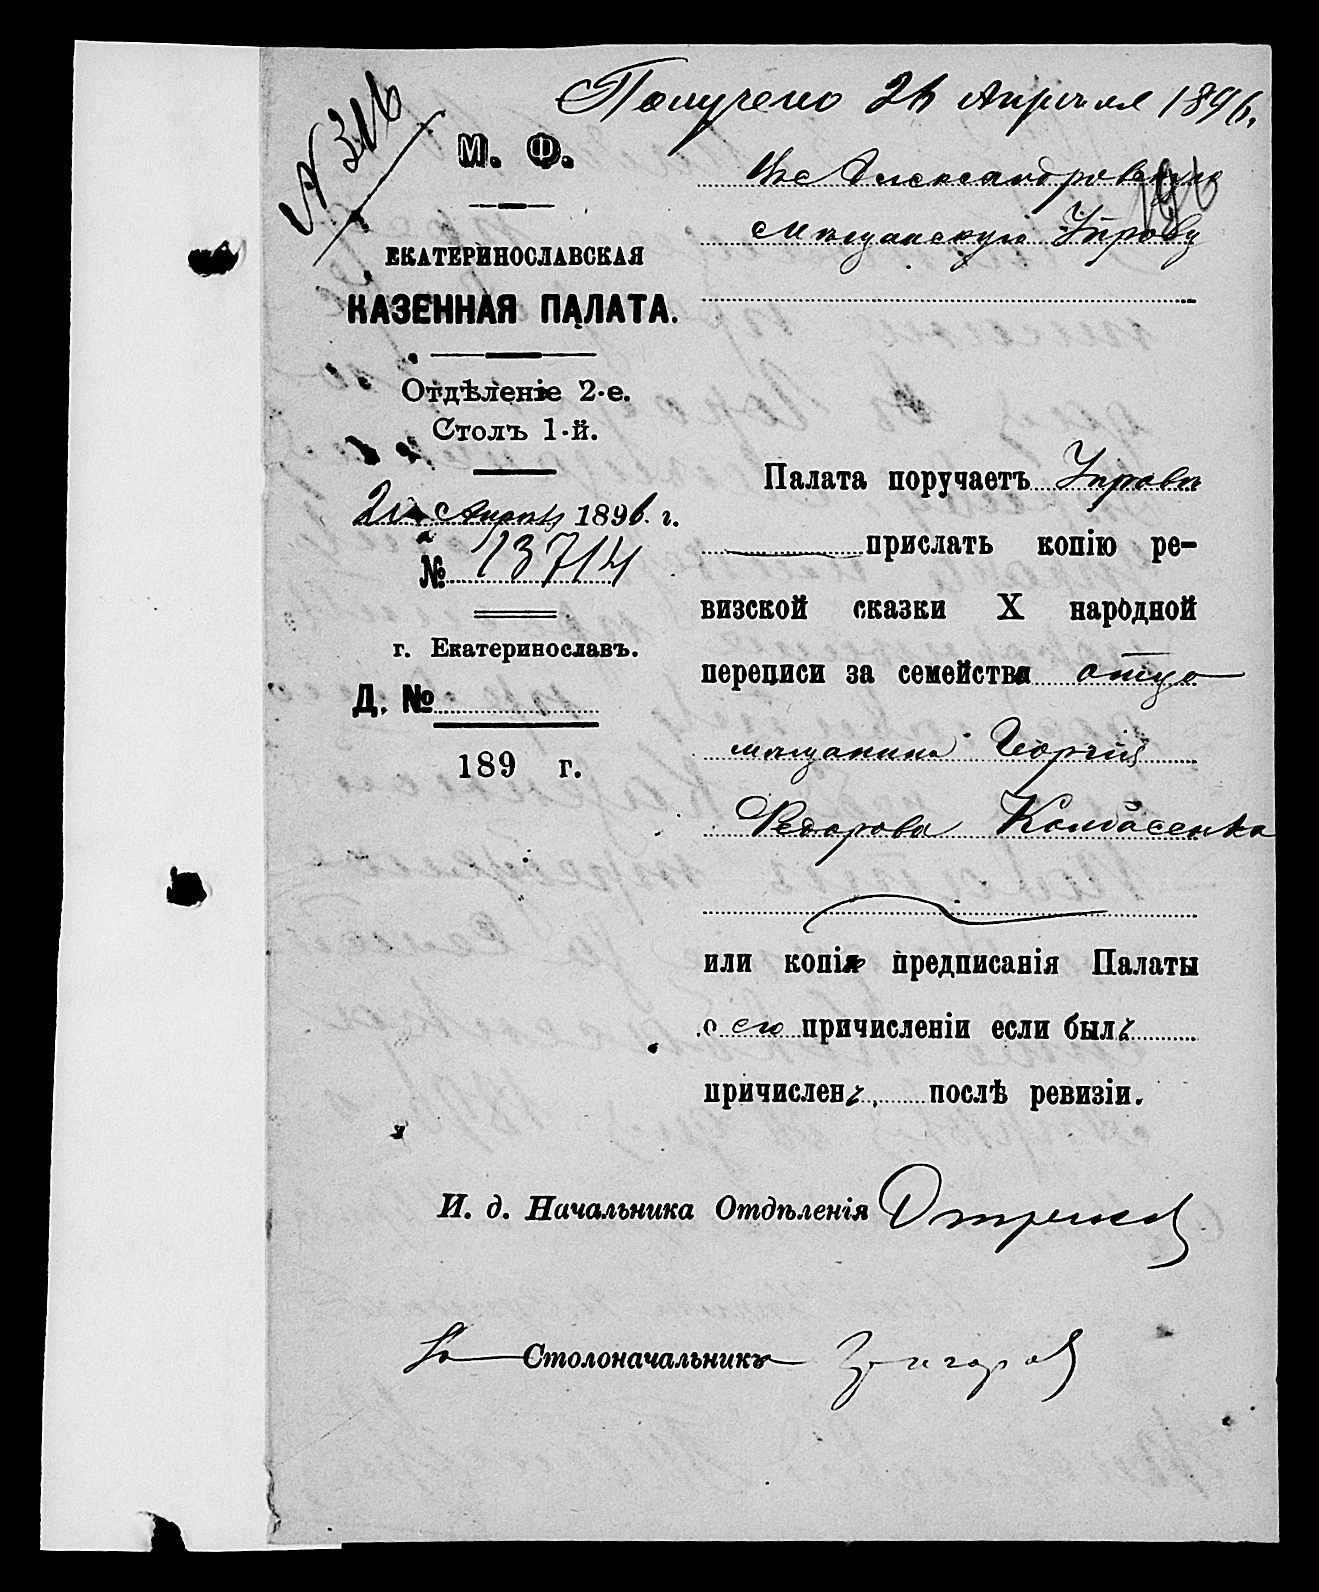 Получено 26 Апрѣля 1896.
№ 316
М. Ф.
ЕКАТЕРИНОСЛАВСКАЯ
КАЗЕННАЯ ПАЛАТА.
Отдѣленіе 2-е.
Столъ 1-й.
Апрѣля 1896 г.
№ 13714
г. Екатеринославъ.
Д. №
189 г.
Въ Александровскую
мѣщанскую Управу
Палата поручаетъ Управѣ
прислать копію ре-
визской сказки X народной
переписи за семейства отца
мѣщанина Георгія
Федорова
или копія предписанія Палаты
о его причисленіи если былъ
причисленъ послѣ ревизіи.
И. д. Начальника Отдѣленія
За Столоначальника